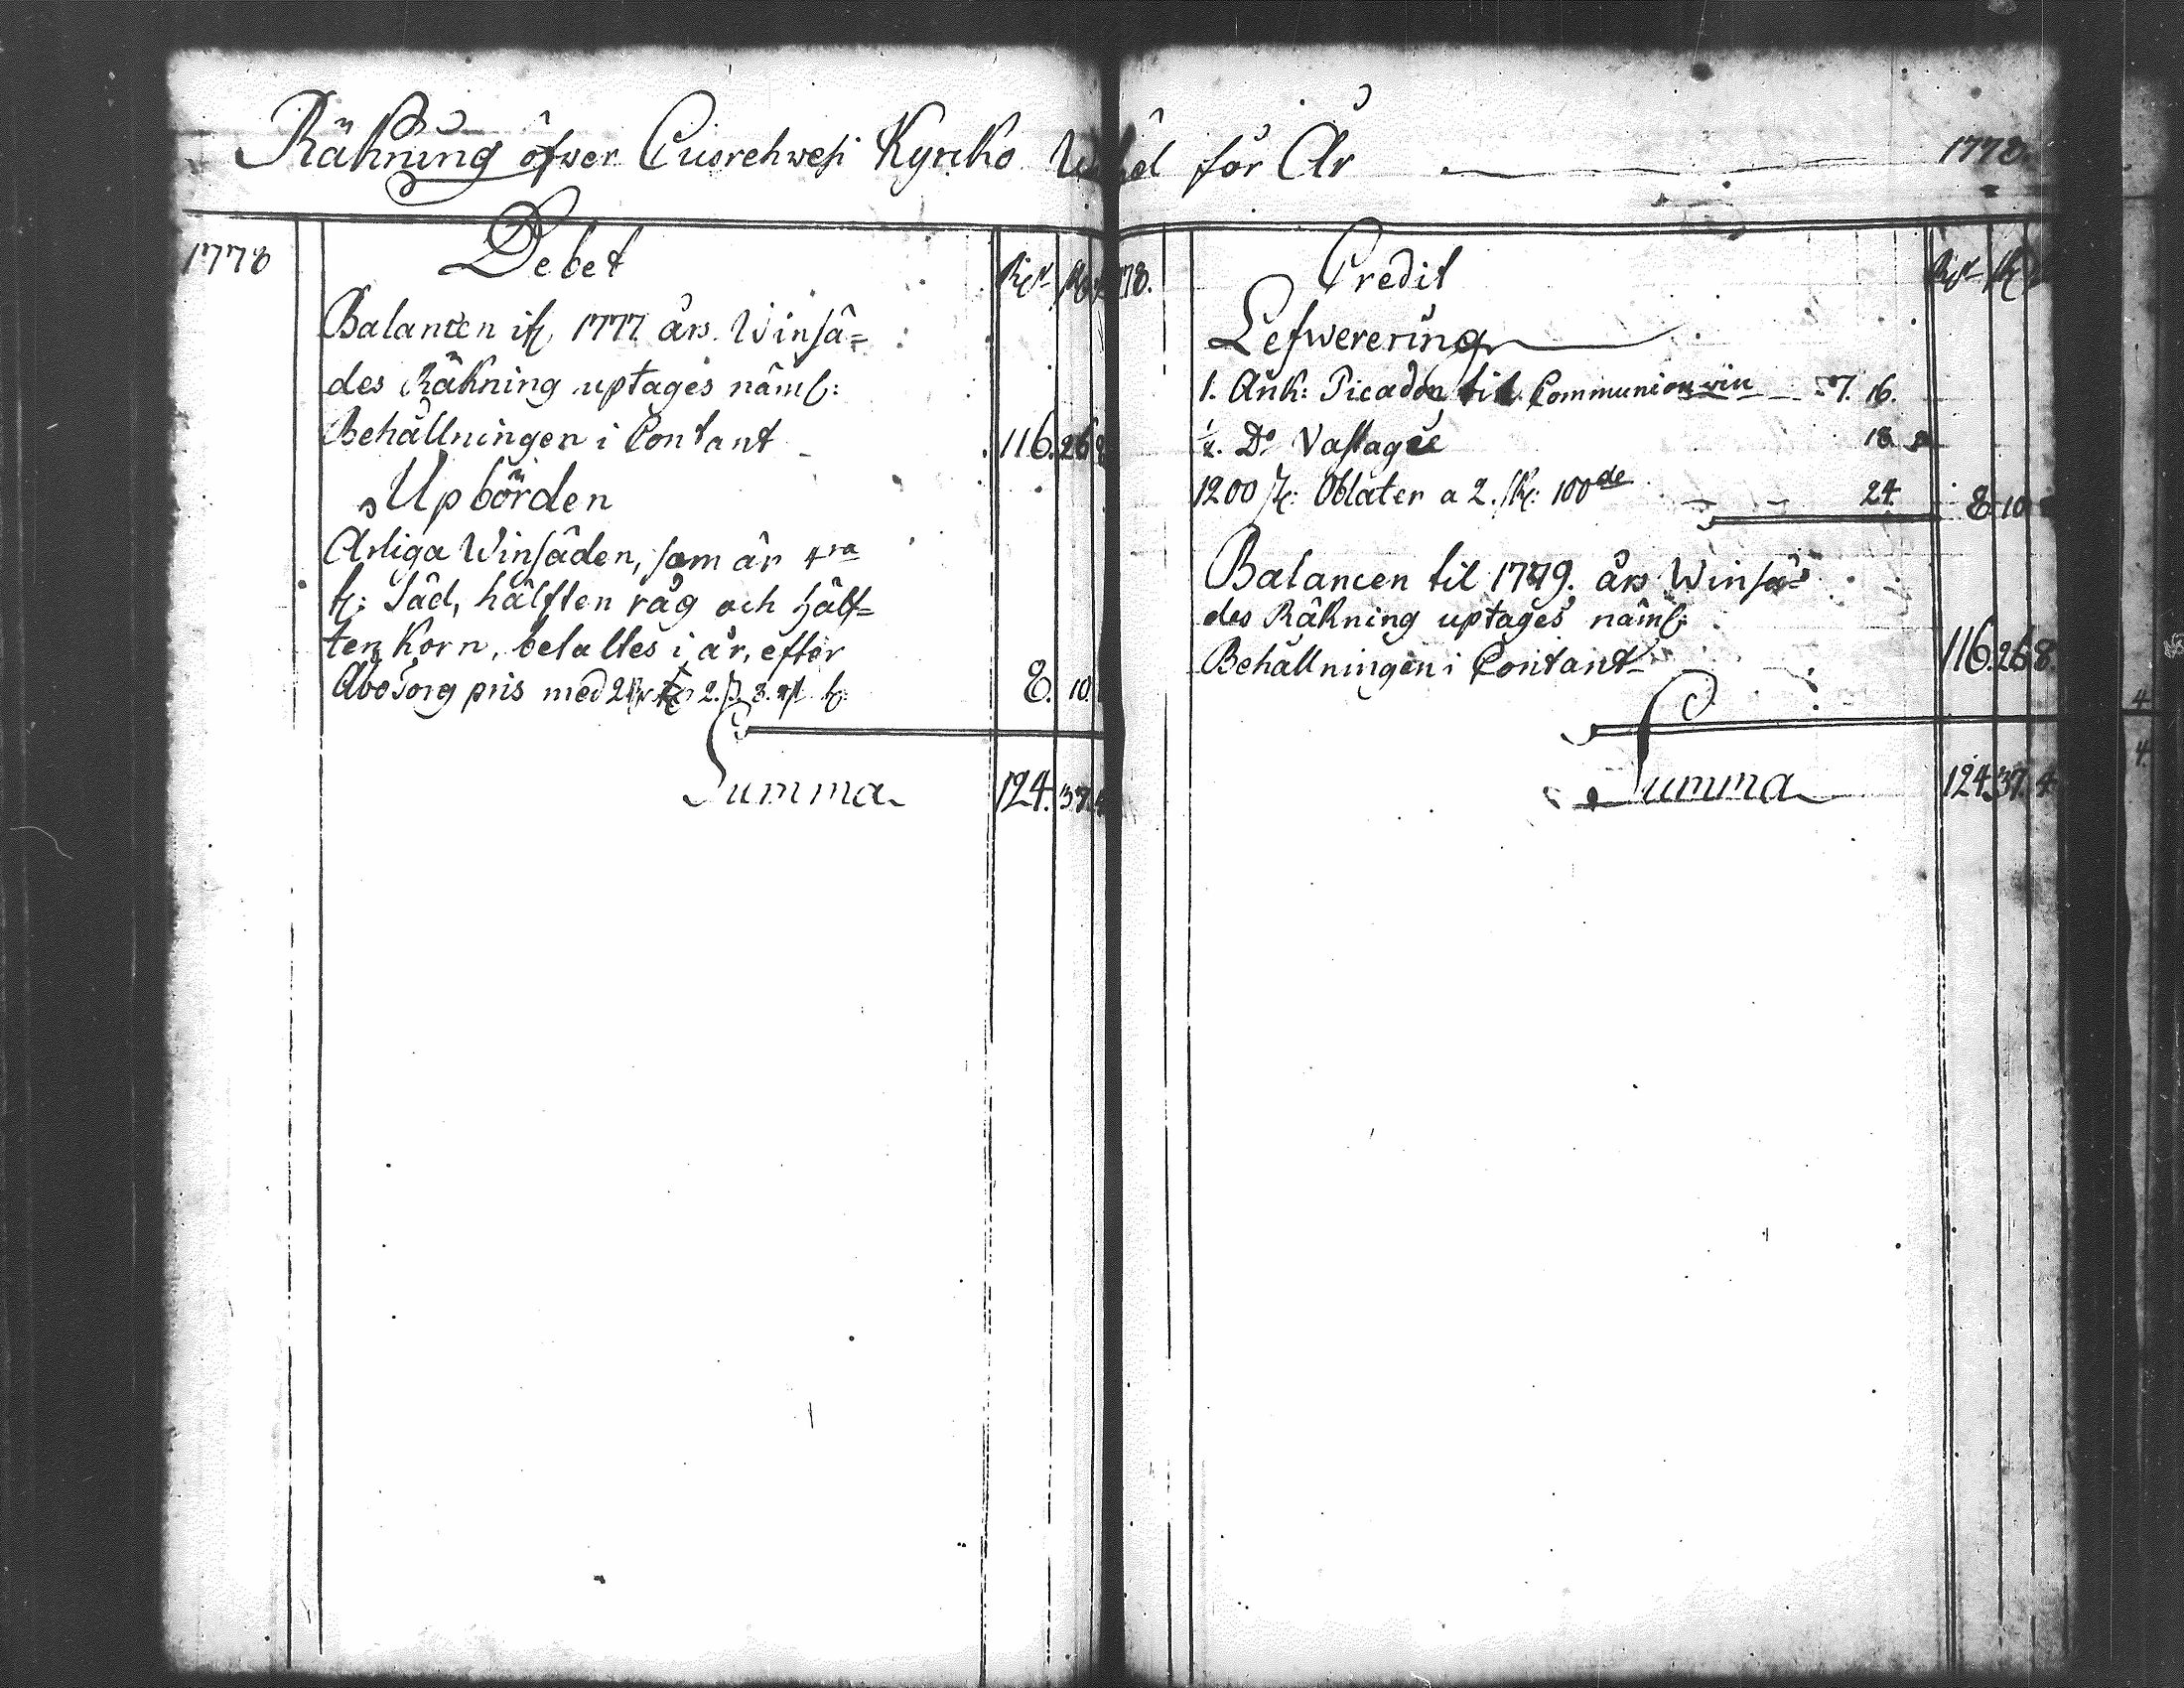 Räkning öfwer Cuorehwesi Kyrcko för År 1778.
1778
Debet
Rdr
Balancen ifr 1777 års Winsä=
des Räkning uptages näml:
Behållningen i Contant 116. 26. 8
Upbörden
Årliga Winsäden, som är 4ra
tr: Säd, hälften råg och hälf=
ten Korn, betaltes i år, efter
Åbo Torg pris med 2 8. 10.
Summa 124. 37. 4
78.
Credit
Rdr
Lefwerering
1. Ank: Picadon til Communion win 7. 16.
½. Do Vastagie 18. 8
1200 st: Oblater a 2. sk: 100de 24 8. 10. 8
Balancen til 1779. års Winsä=
des Räkning uptages näml:
Behållningen i Contant 116. 26. 8.
Summa 124. 37. 4
4
4.